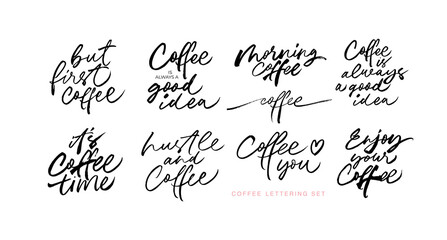 but
first
coffee
Coffee
IS ALWAYS A
good
idea
morning
coffee
coffee
Coffee
is
always
a good
idea
it's
Coffee
time
hustle
and
Coffee
Coffee
you
Enjoy
your
Coffee
COFFEE LETTERING SET